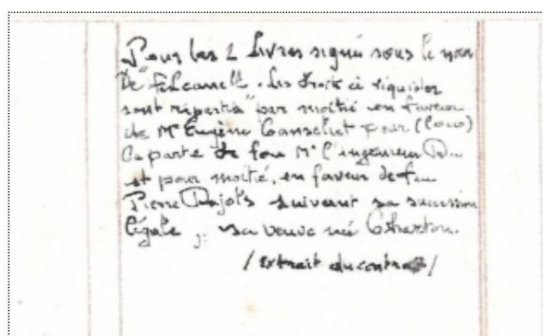 Pour les 2 Livres signé sous le nom
De "Fulcanelli". Les droits à liquider
sont répartis par moitié en faveur
de Mr Eugène Canseliet pour
la parte de feu Mr l'ingénieur D...
et pour moitié, en faveur de feu
Pierre Dujols suivant sa sucession
légale, sa veuve né Charton.
/ extrait du contrat /